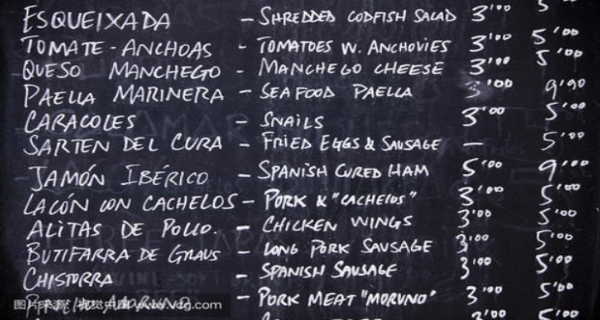 ESQUEIXADA - SHREDDED CODFISH SALAD 3'00 5'00
TOMATE-ANCHOAS - TOMATOES W. ANCHOVIES 3'00 5'00
QUESO MANCHEGO - MANCHEGO CHEESE 3'00 5'00
PAELLA MARINERA - SEAFOOD PAELLA 3'00 9'90
CARACOLES - SNAILS 3'00 5'00
SARTEN DEL CURA - FRIED EGGS & SAUSAGE — 5'00
JAMÓN IBÉRICO - SPANISH CURED HAM 5'00 9'00
LACÓN CON CACHELOS - PORK & "CACHELOS" 3'00 5'00
ALITAS DE POLLO. - CHICKEN WINGS 3'00 5'00
BUTIFARRA DE GRAUS - LONG PORK SAUSAGE 3'00 5'00
CHISTORRA - SPANISH SAUSAGE 3'00 5'00
MORUNO - PORK MEAT "MORUNO" 3'00 5'00
图片来源：视觉中国 www.vcg.com